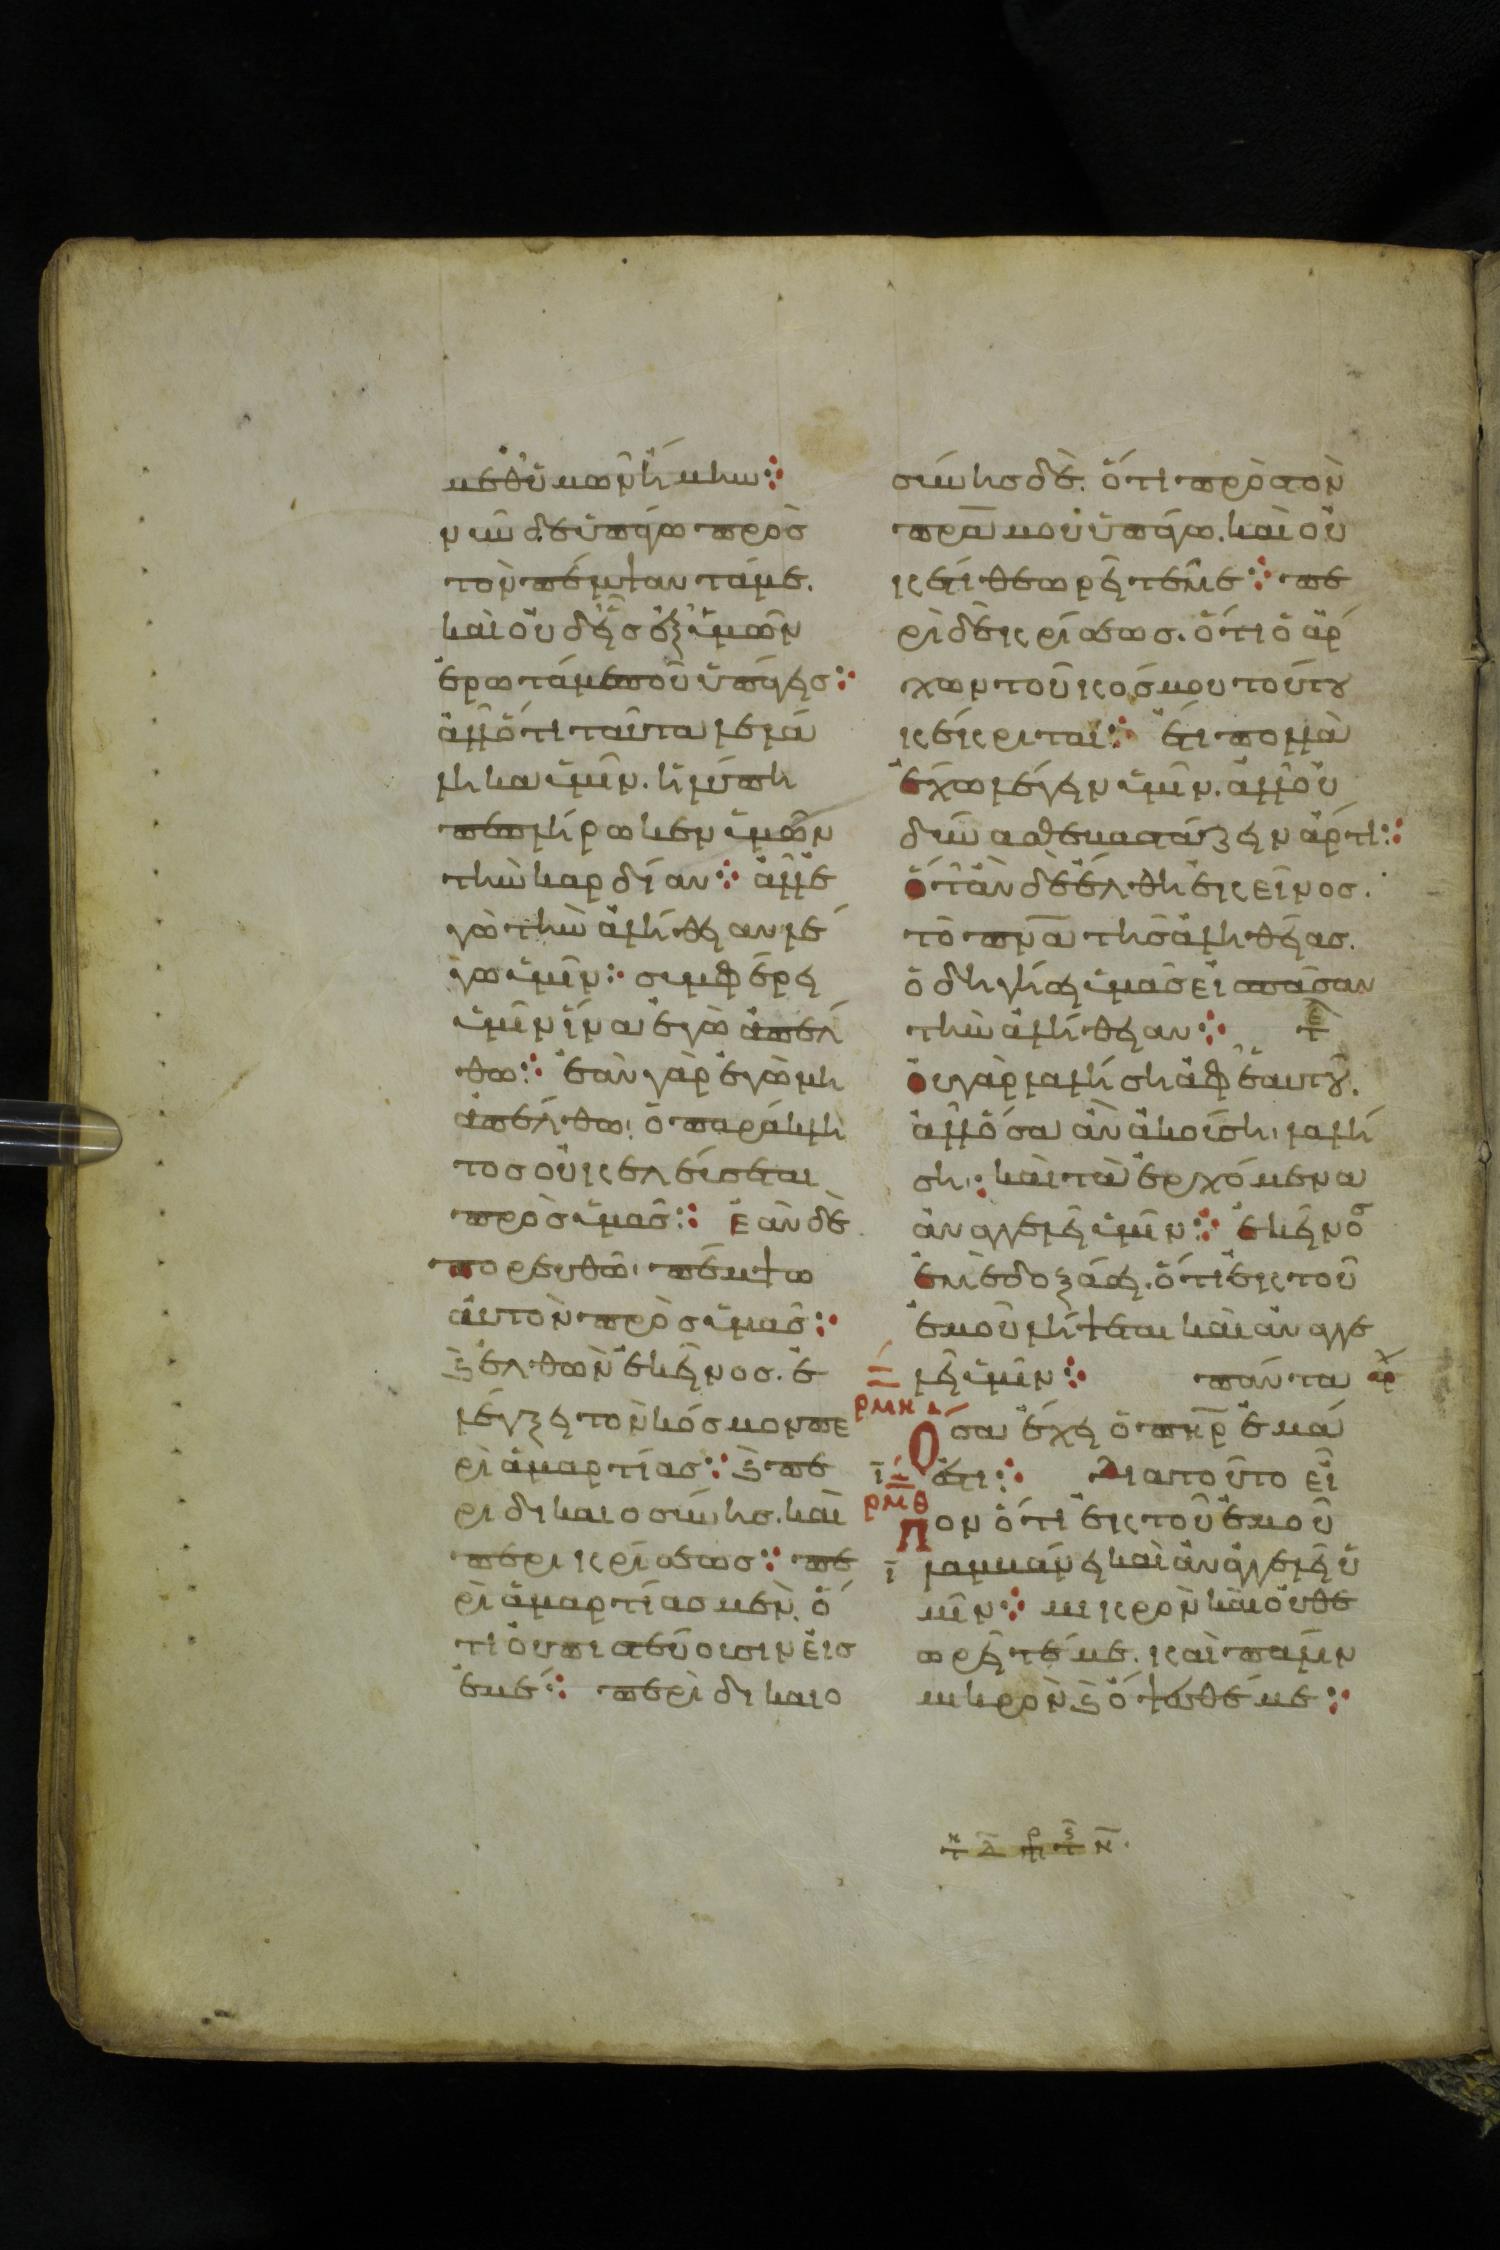 μεθ' ὑμῶν ἤμην
νῦν δὲ ὑπάγω πρὸσ
τὸν πέμψαντά με.
καὶ οὐδεὶσ ἐξ ὑμῶν
ἐρωτᾶ με ποῦ ὑπάγεισ
ἀλλ' ὅτι ταῦτα λελά
ληκα ὑμῖν. ἡ λύπη
πεπλήρωκεν ὑμῶν
τὴν καρδίαν ἀλλ' ἐ
γὼ τὴν ἀλήθειαν λέ
γω ὑμῖν συμφέρει
ὑμῖν ἵνα ἐγὼ ἀπέλ
θω ἐὰν γὰρ ἐγὼ μὴ
ἀπέλθω. ὁ παράκλη
τοσ οὐκ ἐλεύσεται
πρὸσ ὑμᾶσ Ἐὰν δὲ
πορευθῶ. πέμψω
αὐτὸν πρὸσ ὑμᾶσ
ϗ ἐλθὼν ἐκεῖνοσ. ἐ
λέγξει τὸν κόσμον πε
ρὶ ἁμαρτίασ ϗ πε
ρι δικαιοσύνησ. καὶ
περι κρίσεωσ πε
ρὶ ἁμαρτίασ μὲν. ὅ
τι οὐ πιστεύουσιν εἰσ
ἐμέ περὶ δικαιο
σύνησ δὲ. ὅτι πρὸσ τὸν
πρα μου ὑπάγω. καὶ οὐ
κέτι θεωρεῖτέ με πε
ρὶ δὲ κρίσεωσ. ὅτι ὁ ἄρ
χων τοῦ κόσμου τούτου
κέκριται ἔτι πολλὰ
ἔχω λέγειν ὑμῖν. ἀλλ' οὐ
δύνασθε βαστάζειν ἄρτι
ὅταν δὲ ἔλθη ἐκεῖνοσ.
τὸ πνα τῆσ ἀληθείασ.
ὁδηγήσει ὑμᾶσ εἰσ πᾶσαν
τὴν ἀλήθειαν
οὐ γὰρ λαλήση ἀφ' ἑαυτοῦ.
ἀλλ' ὅσα ἂν ἀκούση. λαλή
ση. καὶ τὰ ἐρχόμενα
ἀναγγελεῖ ὑμῖν ἐκεῖνοσ
ἐμὲ δοξάσει. ὅτι ἐκ τοῦ
ἐμοῦ λήψεται καὶ ἀναγγε
λεῖ ὑμῖν πάντα
ρμη
Ὅσα ἔχει ὁ πηρ ἐμά
ἐστι Διατοῦτο εἶ
ρμθ
πον ὅτι ἐκ τοῦ ἐμοῦ
λαμβάνει καὶ ἀναγγελεῖ ὑ
μῖν μικρὸν καὶ οὐ θε
ωρεῖτέ με. καὶ πάλιν
μικρὸν ϗ ὄψεσθέ με